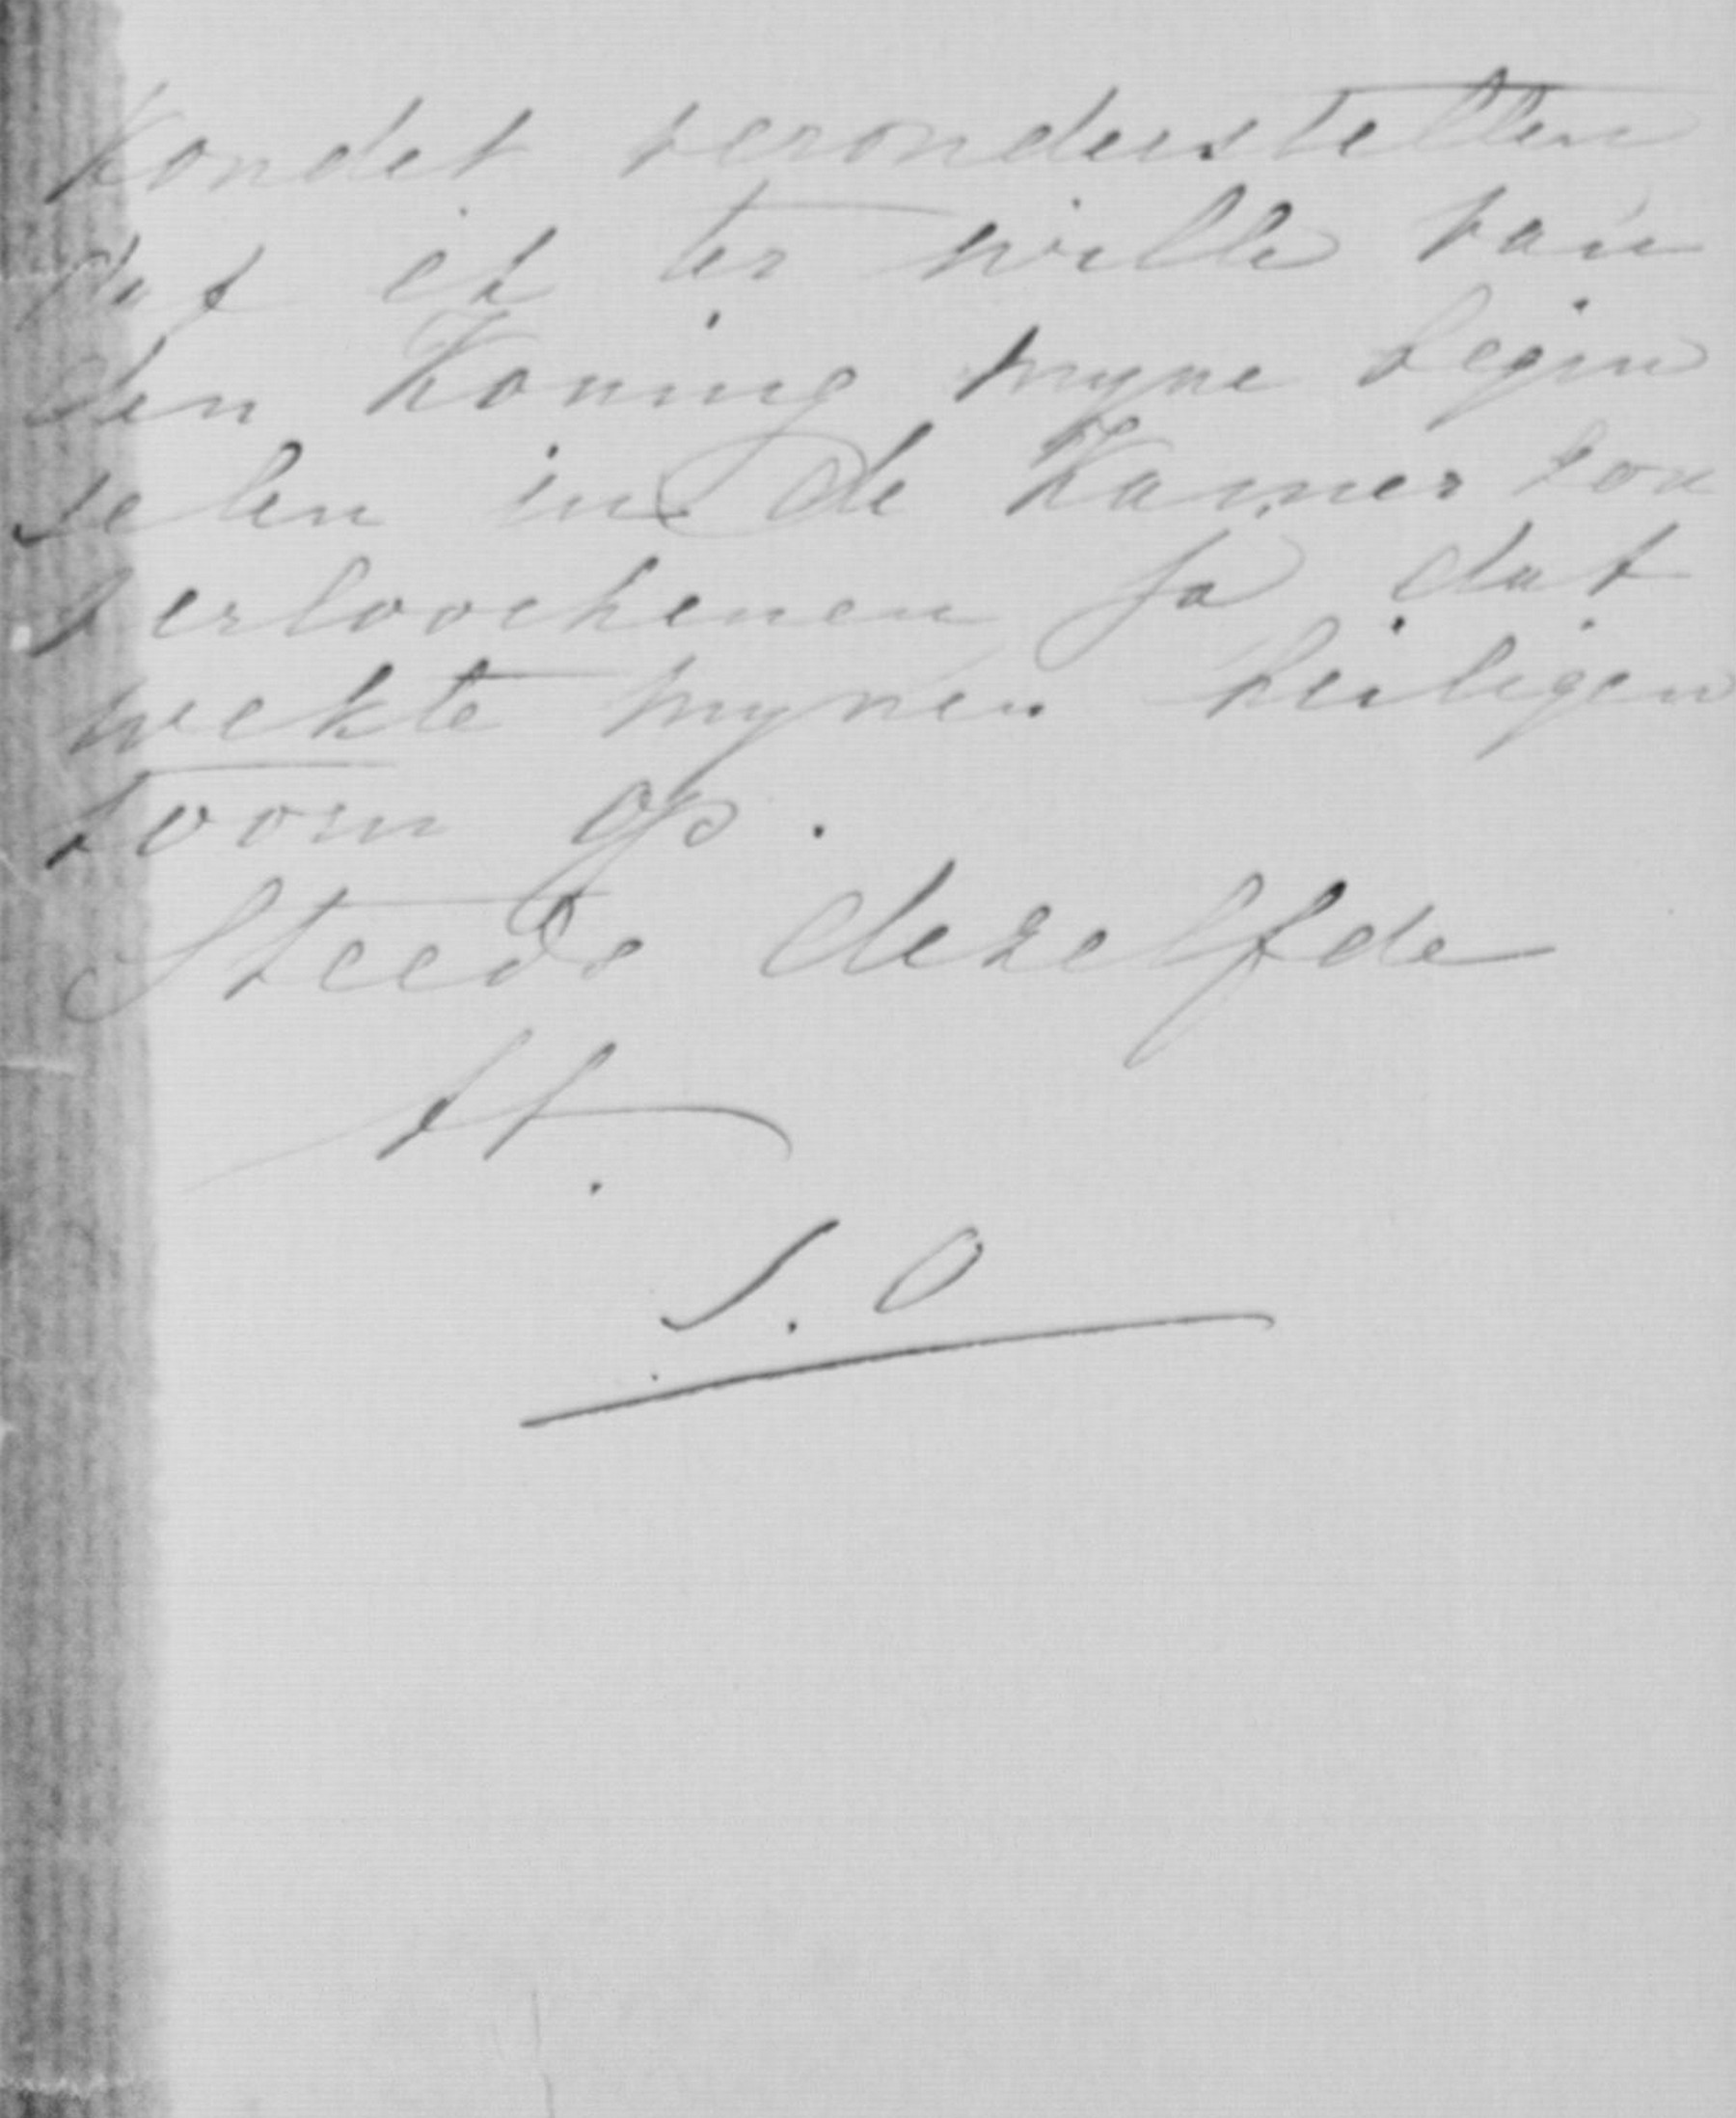 kondet veronderstellen
dat ik ter wille van
den Koning myne begin
selen in de Kamer zou
verloochenen ja dat
wekte mynen heiligen
toorn op.
Steeds dezelfde
tt.
S. O